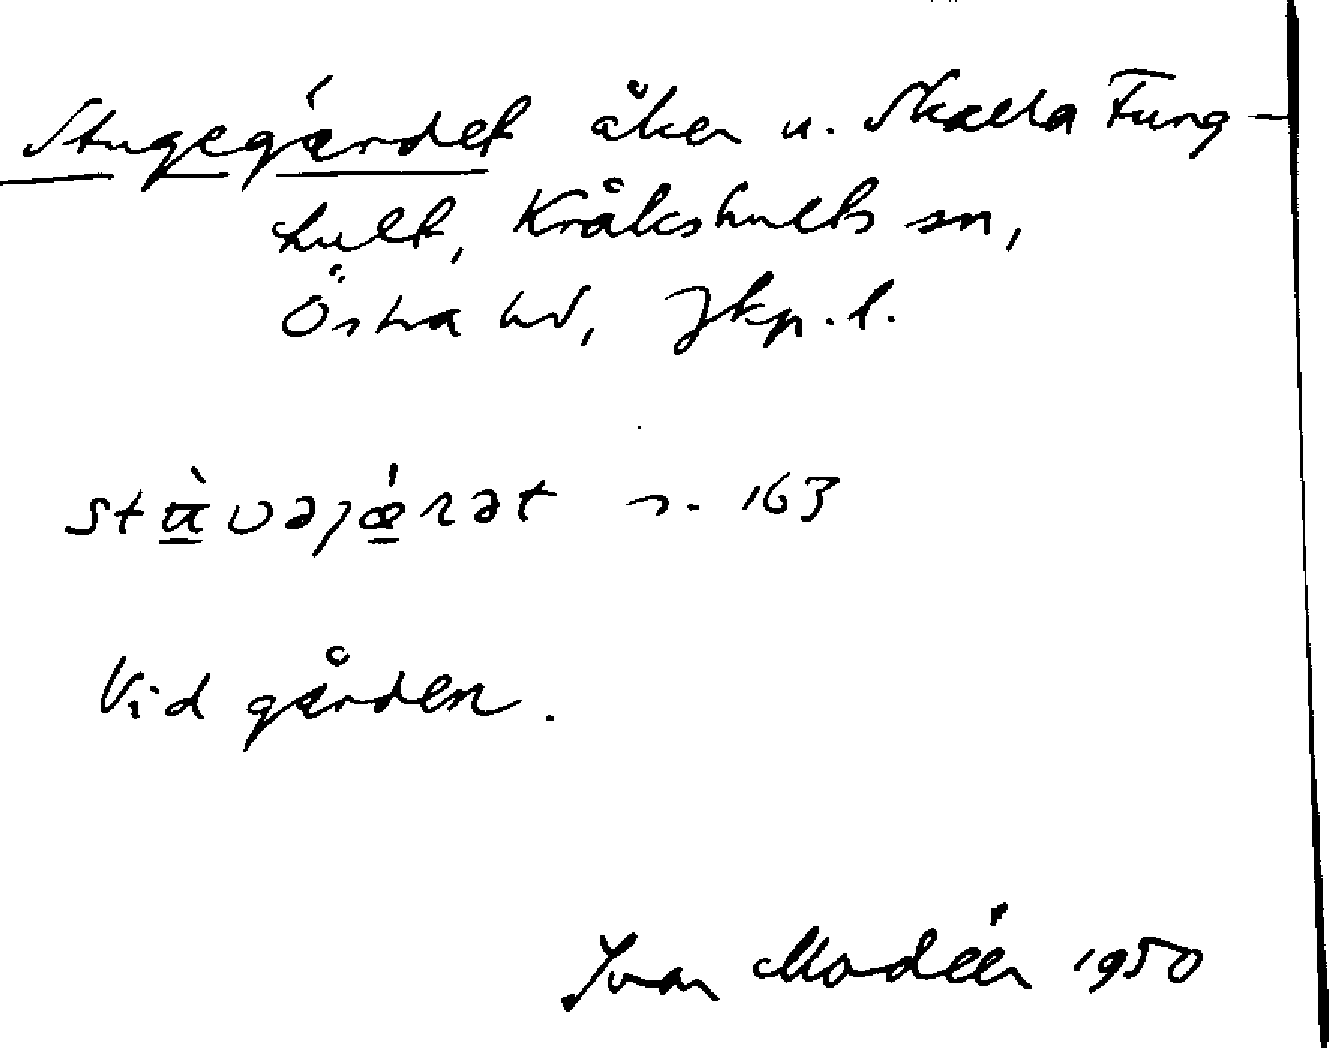 Stugegärdet åker u. Skälla Fung-
hult, Kråkshults sn,
Östra hd, Jkp. l.
stù̠vəjǽ̠ɹət n. 163
Vid gården.
Ivar Modéer 1950